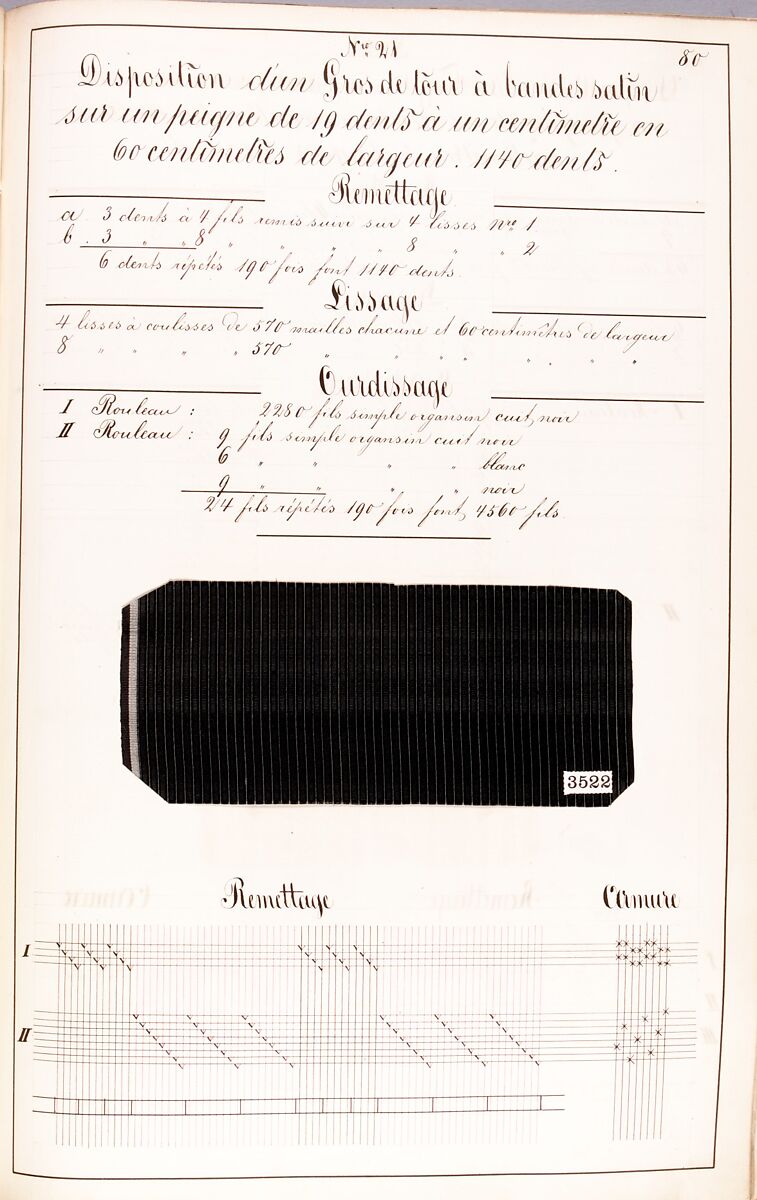 Nro 21
80
Disposition d'un Gros de tour à bandes satin
sur un peigne de 19 dents à un centimetre en
60 centimetres de largeur. 1140 dents.
Remettage
a. 3 dents à 4 fils remis suivi sur 4 lisses nro 1.
b. 3 " " 8 " " " " 8 " " 2
6 dents répétés 190 fois font 1140 dents.
Lissage
4 lisses à coulisses de 570 mailles chacune et 60 centimètres de largeur
8 " " " " 570 " " " " " " " "
Ourdissage
I Rouleau : 2280 fils simple organsin cuit, noir
II Rouleau : 9 fils simple organsin cuit noir
6 " " " " blanc
9 " " " " noir
24 fils répétés 190 fois font, 4560 fils.
3522
Remettage
Armure
I
II